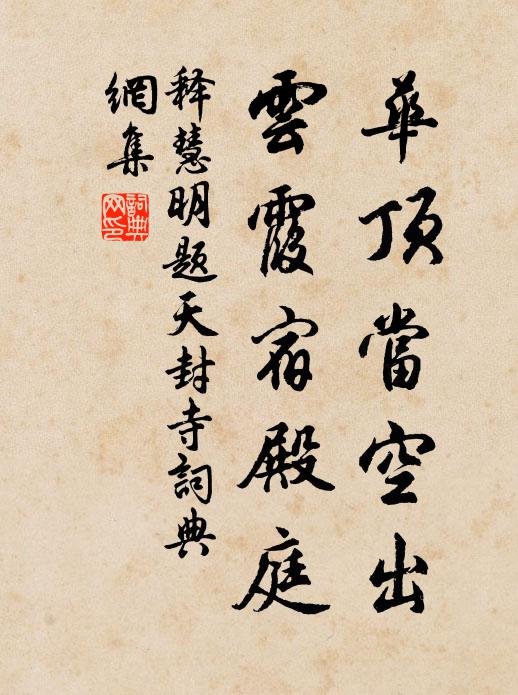 華頂當空出
雲霞宿殿庭
释慧明题天封寺詞典
網集
詞典
网印